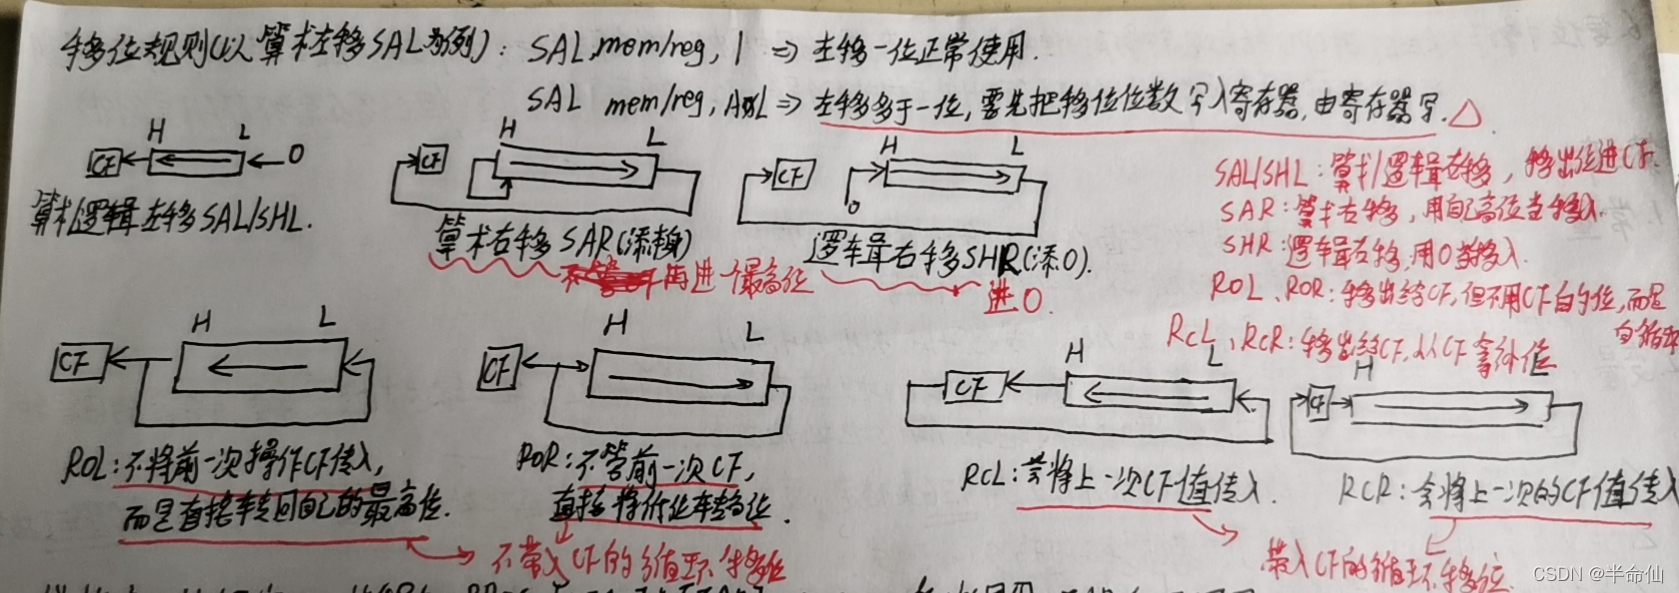 移位规则(以算术左移SAL为例): SAL mem/reg, 1 ⇒ 左移一位正常使用.
SAL mem/reg, ⇒ 左移多于一位,需先把移位位数写入寄存器,由寄存器写.△
H L
CF 0
算术/逻辑左移SAL/SHL.
H L
CF
算术右移SAR(添)
再进一个最高位
H L
CF
0
逻辑右移SHR(添0).
进0.
SAL/SHL:算术/逻辑左移,移出位进CF.
SAR:算术右移,用自己高位当移入.
SHR:逻辑右移,用0当移入.
ROL、ROR:移出给CF,但不用CF自的位,而是
自循环
RCL、RCR:移出给CF,从CF拿补位
H L
CF
ROL:不将前一次操作CF传入,
而是直接转回自己的最高位.
H L
CF
ROR:不管前一次CF,
直接将低位转高位.
不带入CF的循环移位
H L
CF
RCL:会将上一次CF值传入.
H L
CF
RCR:会将上一次的CF值传入
带入CF的循环移位.
CSDN @半命仙